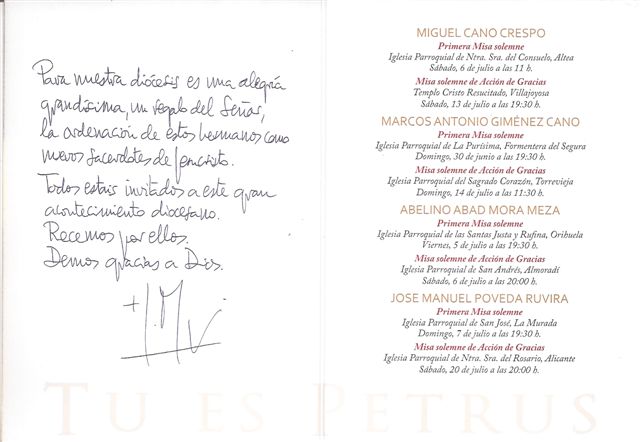 Para nuestra diócesis es una alegría
grandísima, un regalo del Señor,
la ordenación de estos hermanos como
nuevos sacerdotes de Jesucristo.
Todos estáis invitados a este gran
acontecimiento diocesano.
Recemos por ellos.
Demos gracias a Dios.
MIGUEL CANO CRESPO
Primera Misa solemne
Iglesia Parroquial de Ntra. Sra. del Consuelo, Altea
Sábado, 6 de julio a las 11 h.
Misa solemne de Acción de Gracias
Templo Cristo Resucitado, Villajoyosa
Sábado, 13 de julio a las 19:30 h.
MARCOS ANTONIO GIMÉNEZ CANO
Primera Misa solemne
Iglesia Parroquial de La Purísima, Formentera del Segura
Domingo, 30 de junio a las 19:30 h.
Misa solemne de Acción de Gracias
Iglesia Parroquial del Sagrado Corazón, Torrevieja
Domingo, 14 de julio a las 11:30 h.
ABELINO ABAD MORA MEZA
Primera Misa solemne
Iglesia Parroquial de las Santas Justa y Rufina, Orihuela
Viernes, 5 de julio a las 19:30 h.
Misa solemne de Acción de Gracias
Iglesia Parroquial de San Andrés, Almoradí
Sábado, 6 de julio a las 20:00 h.
JOSE MANUEL POVEDA RUVIRA
Primera Misa solemne
Iglesia Parroquial de San José, La Murada
Domingo, 7 de julio a las 19:30 h.
Misa solemne de Acción de Gracias
Iglesia Parroquial de Ntra. Sra. del Rosario, Alicante
Sábado, 20 de julio a las 20:00 h.
TU ES PETRUS